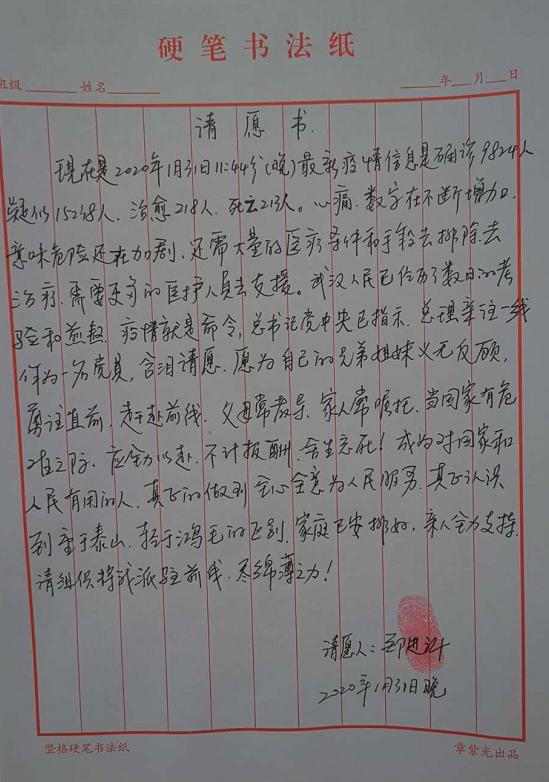 硬笔书法纸
班级 姓名 年 月 日
请愿书.
现在是2020年1月31日11:44分(晚)最新疫情信息是确诊9824人
疑似15238人、治愈218人、死亡213人。心痛.数字在不断增加.
意味危险还在加剧.还需大量的医疗条件和手段去排除.去
治疗.需要更多的医护人员去支援。武汉人民已经历了数日的考
验和煎熬.疫情就是命令,总书记党中央已指示.总理亲往一线
作为一名党员,含泪请愿.愿为自己的兄弟姐妹义无反顾,
勇往直前.赶赴前线.父母常教导、家人常嘱托.当国家有危
难之际.应全力以赴.不计报酬.舍生忘死!成为对国家和
人民有用的人.真正的做到全心全意为人民服务.真正认识
到重于泰山.轻于鸿毛的区别.家庭已安排好,亲人全力支持.
请组织将我派驻前线.尽绵薄之力!
请愿人:
2020年1月31日晚
竖格硬笔书法纸 章紫光出品